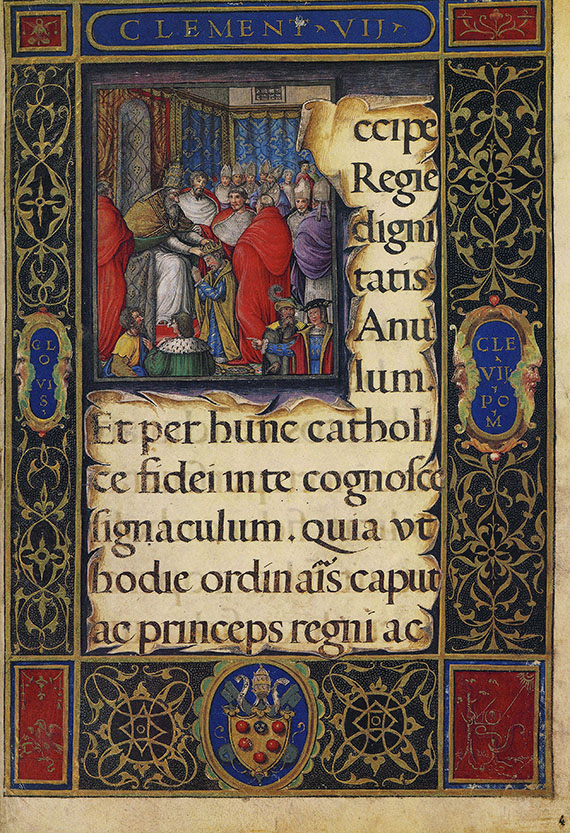 CLEMENT VIJ
ccipe
Regie
digni
tatis
Anu
lum.
Et per hunc catholi
ce fidei in te cognosce
signaculum. quia vt
hodie ordinaĩs caput
ac princeps regni ac
CLO
VIS
CLE
VII
PO
M
4